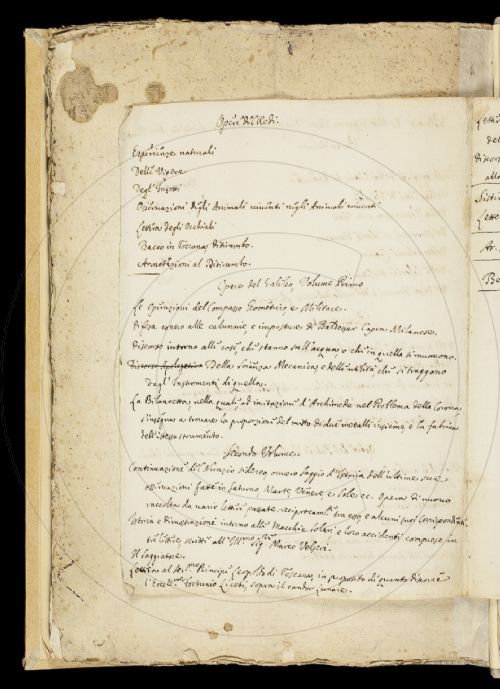 Opere del Redi.
Esperienze naturali
Delle Vipere
Degl' Insetti
Osservazioni degli Animali viventi negli Animali viventi
Lettera degli Occhiali
Bacco in Toscana Ditirambo.
Annotazioni al Ditirambo.
Opere del Galileo, Volume Primo
Le Operazioni del Compasso Geometrico, e Militare.
Difesa contro alle calunnie, e imposture di Baldessar Capra Milanese.
Discorso intorno alle cose, che stanno sull'acqua, o che in quella si muovono.
Discorso Apologetico Della Scienza Mecanica, e delle utilità, che si traggono
dagl' Instromenti di quella.
La Bilancetta, nella quale ad imitazione d'Archimede nel Problema della Corona,
s'insegna a trovare la proporzione del misto di due metalli insieme, e la fabrica
dell'istesso strumento.
Secondo Volume.
Continuazione del Nuncio sidereo, ovvero Saggio d'Istoria dell'ultime sue
osservazioni fatte in Saturno, Marte, Venere, e Sole ec. Opera di nuovo
raccolta da varie lettere passate reciprocam.te tra esso, e alcuni suoi Corrispondenti.
Istoria e Dimostrazione intorno alle Macchie Solari e loro accidenti comprese in
tre lettere scritte all' Ill.mo Sig.r Marco Velseri.
Il Saggiatore.
Lettera al Ser.mo Principe Leopoldo di Toscana, in proposito di quanto discorre
l'Eccell.mo Fortunio Liceti, sopra il candor Lunare.
Lette
del
discor
alla
Siste
Lette
Ar.
Be